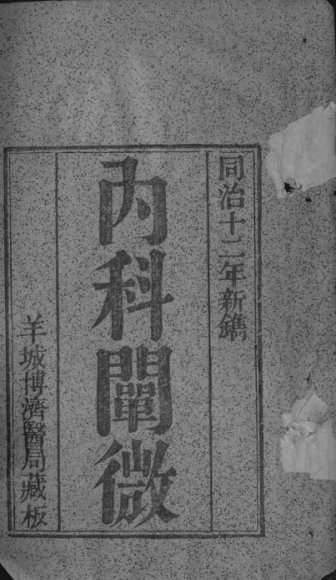 同治十二年新鐫
內科闡微
羊城博濟醫局藏板